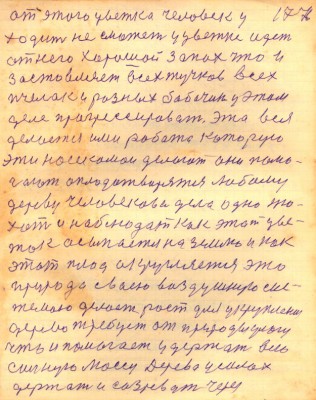 от этого цветка человек у 177
ходит не сможет у цветке идет
от него хорошой запах что и
застовляет всех жучков всех
пчелак и разных бабочик у этом
деле прогрессироват. Эта вся
делается ими работа которую
эти носекомаи делают они помо-
гают оплодатворятся любому
дереву человекова дела одно
и наблюдат как этот цве-
ток асыпается на землю и как
этот плод округляется это
природа сваею воздушную сис-
темаю делает рост для укрепления
дерево требует от природы
что и помогает удержат всю
силную массу Дерево усилах
держат и созреват через